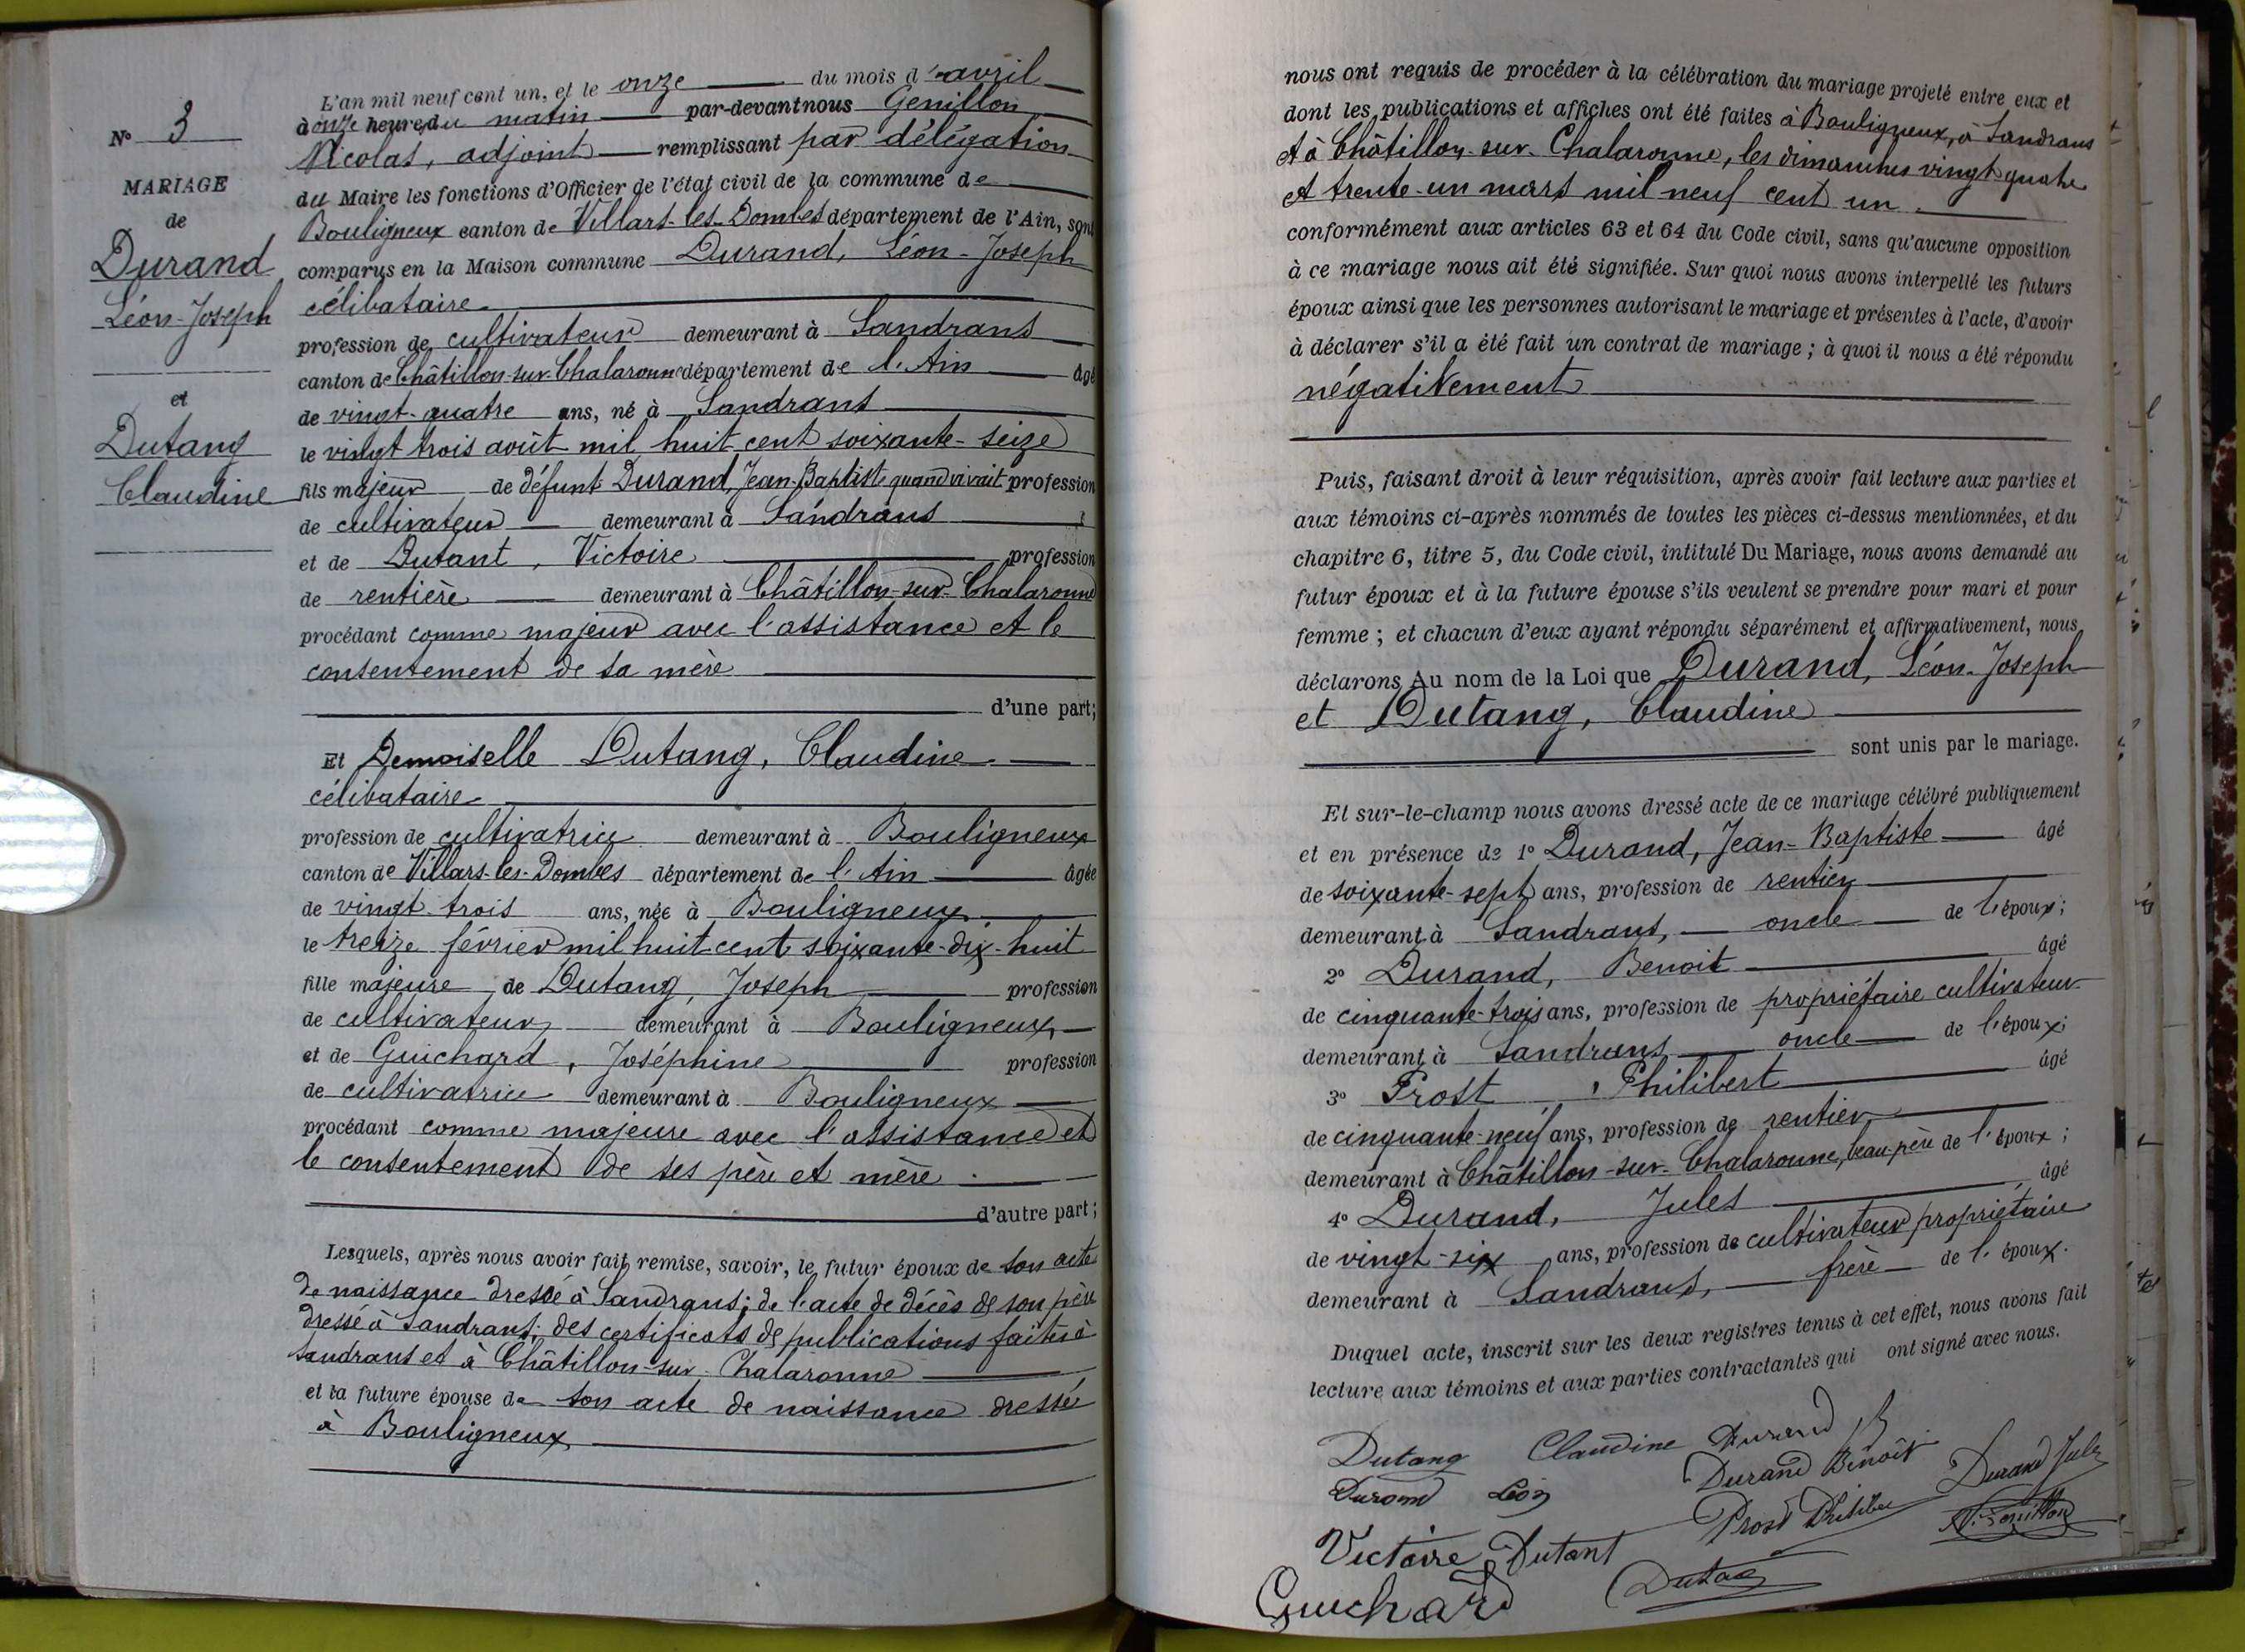 N° 3
MARIAGE
de
Durand
Léon-Joseph
et
Dutang
Claudine
L'an mil neuf cent un, et le onze du mois d'avril
à onze heures du matin par-devant nous Genillon
Nicolas, adjoint remplissant par délégation
du Maire les fonctions d'Officier de l'état civil de la commune de
Bouligneux canton de Villars-les-Dombes département de l'Ain, sont
comparus en la Maison commune Durand, Léon-Joseph
célibataire
profession de cultivateur demeurant à Sandrans
canton de Châtillon-sur-Chalaronne département de l'Ain âgé
de vingt-quatre ans, né à Sandrans
le vingt trois août mil huit cent soixante-seize
fils majeur de défunt Durand, Jean-Baptiste quand vivait profession
de cultivateur demeurant à Sandrans
et de Dutant, Victoire profession
de rentière demeurant à Châtillon-sur-Chalaronne
procédant comme majeur avec l'assistance et le
consentement de sa mère
d'une part;
Et Demoiselle Dutang, Claudine
célibataire
profession de cultivatrice demeurant à Bouligneux
canton de Villars-les-Dombes département de l'Ain âgée
de vingt-trois ans, née à Bouligneux
le treize février mil huit cent soixante-dix-huit
fille majeure de Dutang, Joseph profession
de cultivateur demeurant à Bouligneux
et de Guichard, Joséphine profession
de cultivatrice demeurant à Bouligneux
procédant comme majeure avec l'assistance et
le consentement de ses père et mère.
d'autre part;
Lesquels, après nous avoir fait remise, savoir, le futur époux de son acte
de naissance dressé à Sandrans; de l'acte de décès de son père
dressé à Sandrans; des certificats de publications faites à
Sandrans et à Châtillon-sur-Chalaronne
et la future épouse de son acte de naissance dressé
à Bouligneux
nous ont requis de procéder à la célébration du mariage projeté entre eux et
dont les publications et affiches ont été faites à Bouligneux, à Sandrans
et à Châtillon-sur-Chalaronne, les dimanches vingt-quatre
et trente-un mars mil neuf cent un.
conformément aux articles 63 et 64 du Code civil, sans qu'aucune opposition
à ce mariage nous ait été signifiée. Sur quoi nous avons interpellé les futurs
époux ainsi que les personnes autorisant le mariage et présentes à l'acte, d'avoir
à déclarer s'il a été fait un contrat de mariage; à quoi il nous a été répondu
négativement
Puis, faisant droit à leur réquisition, après avoir fait lecture aux parties et
aux témoins ci-après nommés de toutes les pièces ci-dessus mentionnées, et du
chapitre 6, titre 5, du Code civil, intitulé Du Mariage, nous avons demandé au
futur époux et à la future épouse s'ils veulent se prendre pour mari et pour
femme; et chacun d'eux ayant répondu séparément et affirmativement, nous
déclarons Au nom de la Loi que Durand, Léon-Joseph
et Dutang, Claudine
sont unis par le mariage.
Et sur-le-champ nous avons dressé acte de ce mariage célébré publiquement
et en présence de 1° Durand, Jean-Baptiste âgé
de soixante-sept ans, profession de rentier
demeurant à Sandrans, oncle de l'époux;
2° Durand, Benoit âgé
de cinquante-trois ans, profession de propriétaire cultivateur
demeurant à Sandrans oncle de l'époux;
3° Prost, Philibert âgé
de cinquante-neuf ans, profession de rentier
demeurant à Châtillon-sur-Chalaronne, beau-père de l'époux;
4° Durand, Jules âgé
de vingt-six ans, profession de cultivateur propriétaire
demeurant à Sandrans, frère de l'époux.
Duquel acte, inscrit sur les deux registres tenus à cet effet, nous avons fait
lecture aux témoins et aux parties contractantes qui ont signé avec nous.
Dutang Claudine Durand JB
Durand Léon Durand Benoit Durand Jules
Victoire Dutant Prost Philibert N. Genillon
Guichard Dutang